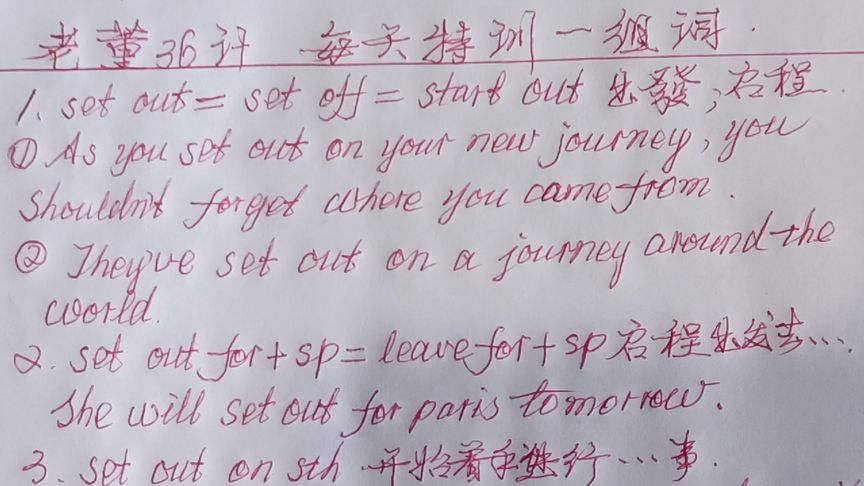 老董36计 每天特训一组词.
1. set out = set off = start out 出發;启程.
① As you set out on your new journey, you
shouldn't forget where you came from.
② They've set out on a journey around the
world.
2. set out for + sp = leave for + sp 启程出发去….
She will set out for paris tomorrow.
3. set out on sth 开始着手进行…事.